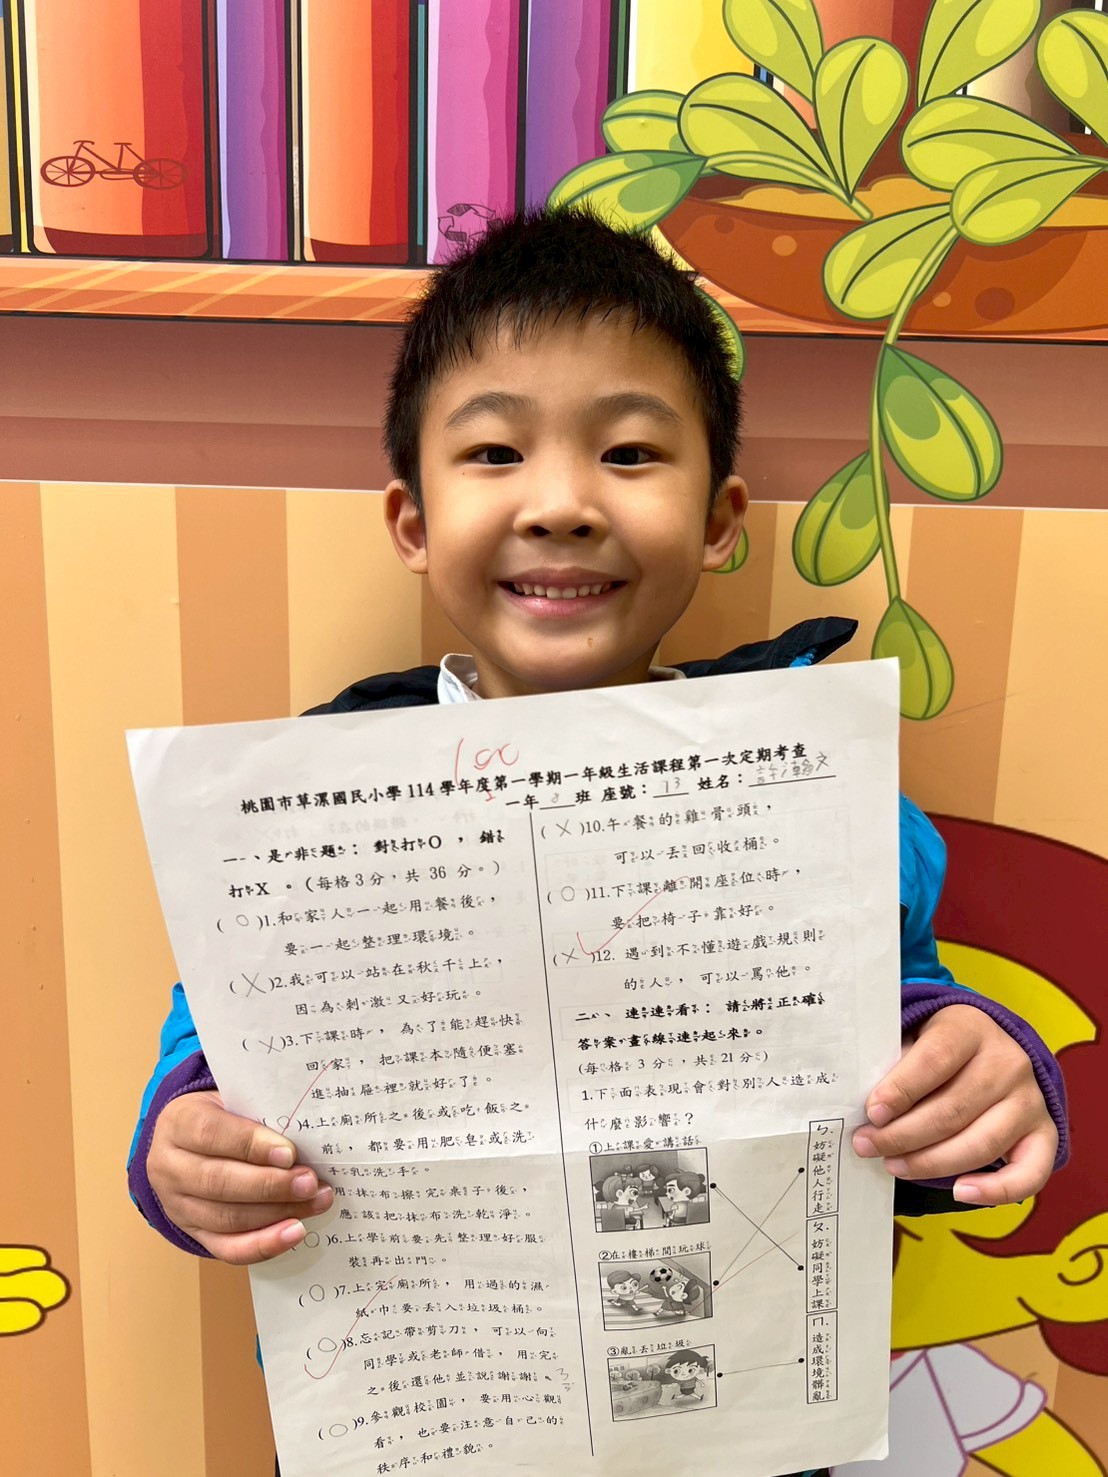 100
桃園市草漯國民小學114學年度第一學期一年級生活課程第一次定期考查
一年 8 班 座號：13 姓名：許瀚文
一、是非題：對打O，錯
打X。(每格3分，共 36 分。)
(○)1.和家人一起用餐後，
要一起整理環境。
(X)2.我可以站在秋千上，
因為刺激又好玩。
(X)3.下課時，為了能趕快
回家，把課本隨便塞
進抽屜裡就好了。
(○)4.上廁所之後或吃飯之
前，都要用肥皂或洗
手乳洗手。
用抹布擦完桌子後，
應該把抹布洗乾淨。
(○)6.上學前要先整理好服
裝再出門。
(○)7.上完廁所，用過的濕
紙巾要丟入垃圾桶。
(○)8.忘記帶剪刀，可以向
同學或老師借，用完
之後還他並說謝謝。
(○)9.參觀校園，要用心觀
看，也要注意自己的
秩序和禮貌。
(X)10.午餐的雞骨頭，
可以丟回收桶。
(○)11.下課離開座位時，
要把椅子靠好。
(X)12. 遇到不懂遊戲規則
的人，可以罵他。
二、連連看：請將正確
答案畫線連起來。
(每格 3 分，共 21 分)
1.下面表現會對別人造成
什麼影響？
①上課愛講話
②在樓梯間玩球
③亂丟垃圾
ㄅ.妨礙他人行走
ㄆ.妨礙同學上課
ㄇ.造成環境髒亂